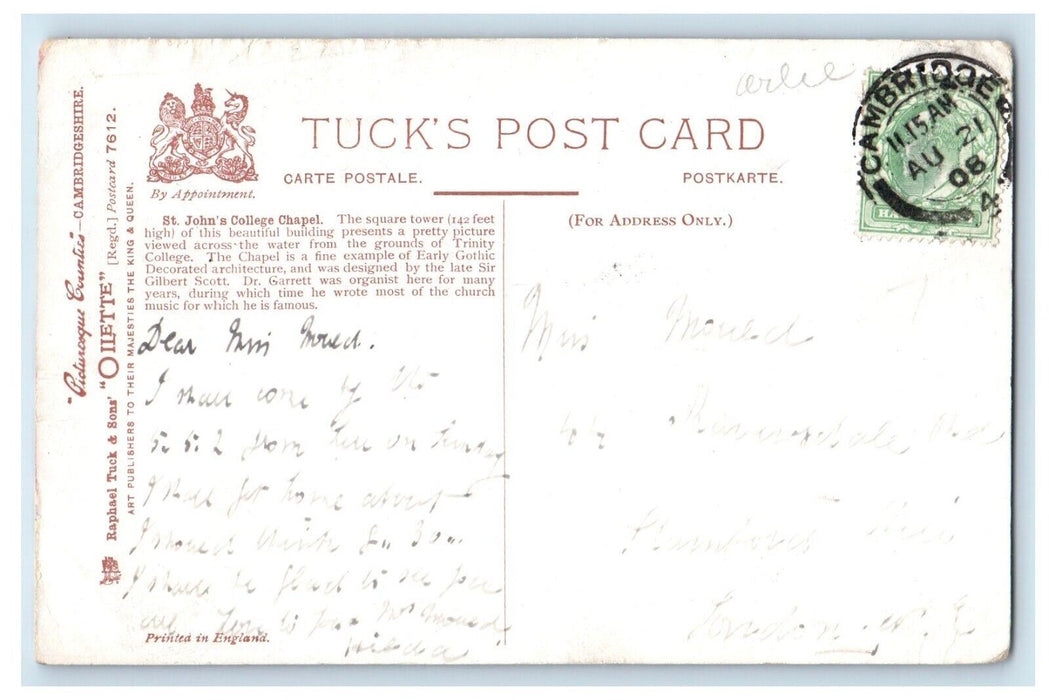 TUCK'S POST CARD
By Appointment.
CARTE POSTALE.
POSTKARTE.
(FOR ADDRESS ONLY.)
"Picturesque Counties"—CAMBRIDGESHIRE.
Raphael Tuck & Sons' "OILETTE" [Regd.] Postcard 7612.
ART PUBLISHERS TO THEIR MAJESTIES THE KING & QUEEN.
St. John's College Chapel. The square tower (142 feet
high) of this beautiful building presents a pretty picture
viewed across the water from the grounds of Trinity
College. The Chapel is a fine example of Early Gothic
Decorated architecture, and was designed by the late Sir
Gilbert Scott. Dr. Garrett was organist here for many
years, during which time he wrote most of the church
music for which he is famous.
Dear Miss
I shall come by the
5.52 from here on
I shall get home about
I
I shall be glad to see you
all love to you
Hilda
Printed in England.
CAMBRIDGE
11.15 AM
AU 21
08
4
Miss
44 Rd
Hill
London